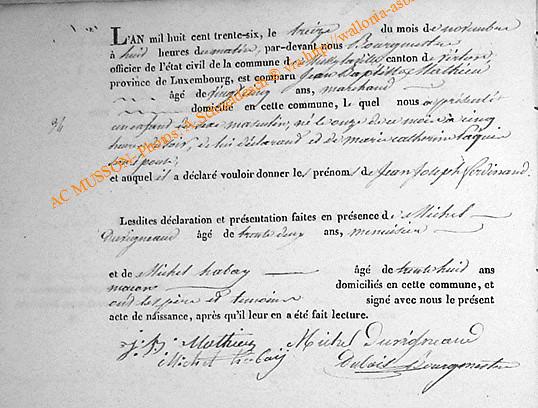 L'AN mil huit cent trente-six, le treize du mois de novembre
à huit heures du matin, par-devant nous Bourgmestre
officier de l'état civil de la commune de canton de Virton,
province de Luxembourg, est comparu Jean Baptiste Mathieu
âgé de vingt cinq ans, marchand
domicilié en cette commune, le quel nous a présenté
un enfant de sexe masculin, né le onze de ce mois à cinq
heures de lui déclarant et de marie catherine
et auquel il a déclaré vouloir donner les prénoms de Jean Joseph ferdinand.
Lesdites déclaration et présentation faites en présence de Michel
Duvigneaud âgé de trente deux ans, menuisier
et de Michel habay âgé de trente huit ans
macon domiciliés en cette commune, et
ont les père et temoins signé avec nous le présent
acte de naissance, après qu'il leur en a été fait lecture.
J. B. Mathieu Michel Duvigneaud
Michel habay Bourgmestre
AC MUSSON-Photos: A Schneiders © via http://wallonia-asb